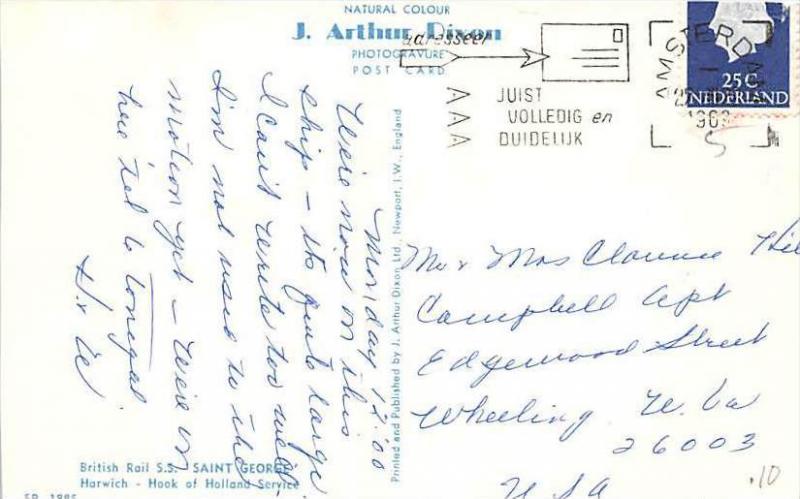 NATURAL COLOUR
J. Arthur Dixon
PHOTOGRAVURE
POST CARD
adresseer
JUIST
VOLLEDIG en
DUIDELIJK
AMSTERDAM
25 C
NEDERLAND
Monday 12:00
We're now on this
ship - its quite large
I can't write too well
I'm not used to the
motion yet - We're in
Printed and Published by J. Arthur Dixon Ltd., Newport, I.W., England
Mr & Mrs Clarence
Campbell Apt
Edgewood Street
Wheeling W. Va
26003
USA
British Rail S.S. SAINT GEORGE
Harwich - Hook of Holland Service
.10